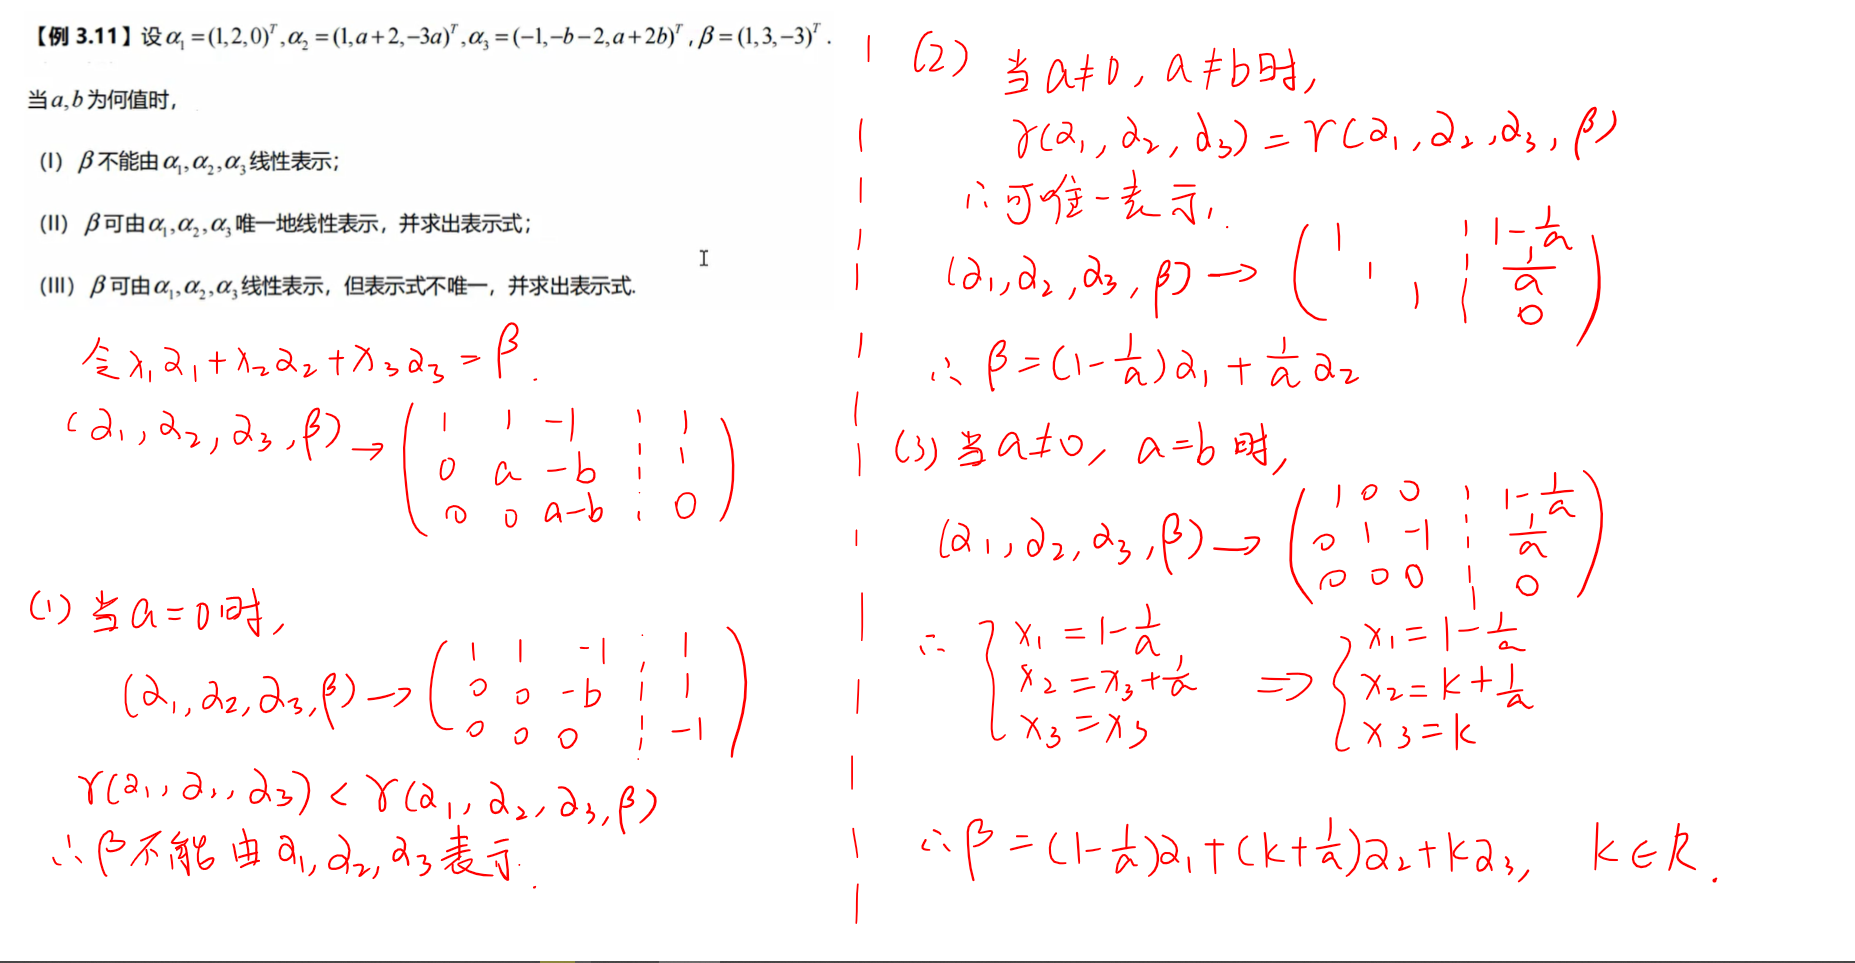 【例 3.11】设 α₁ = (1,2,0)ᵀ, α₂ = (1,a+2,−3a)ᵀ, α₃ = (−1,−b−2,a+2b)ᵀ, β = (1,3,−3)ᵀ.
当 a,b 为何值时，
(I) β 不能由 α₁,α₂,α₃ 线性表示；
(II) β 可由 α₁,α₂,α₃ 唯一地线性表示，并求出表示式；
(III) β 可由 α₁,α₂,α₃ 线性表示，但表示式不唯一，并求出表示式.
令 x₁α₁+x₂α₂+x₃α₃=β.
(α₁,α₂,α₃,β)→
1 1 −1 ⋮ 1
0 a −b ⋮ 1
0 0 a−b ⋮ 0
(1) 当 a=0时,
(α₁,α₂,α₃,β)→
1 1 −1 ⋮ 1
0 0 −b ⋮ 1
0 0 0 ⋮ −1
r(α₁,α₂,α₃) < r(α₁,α₂,α₃,β)
∴β不能由α₁,α₂,α₃表示.
(2) 当 a≠0, a≠b时,
r(α₁,α₂,α₃)=r(α₁,α₂,α₃,β)
∴可唯一表示,
(α₁,α₂,α₃,β)→
1 ⋮ 1−1/a
1 ⋮ 1/a
1 ⋮ 0
∴ β=(1−1/a)α₁+1/a α₂
(3) 当a≠0, a=b时,
(α₁,α₂,α₃,β)→
1 0 0 ⋮ 1−1/a
0 1 −1 ⋮ 1/a
0 0 0 ⋮ 0
∴ { x₁=1−1/a ⇒ { x₁=1−1/a
x₂=x₃+1/a x₂=k+1/a
x₃=x₃ x₃=k
∴β=(1−1/a)α₁+(k+1/a)α₂+kα₃, k∈R.